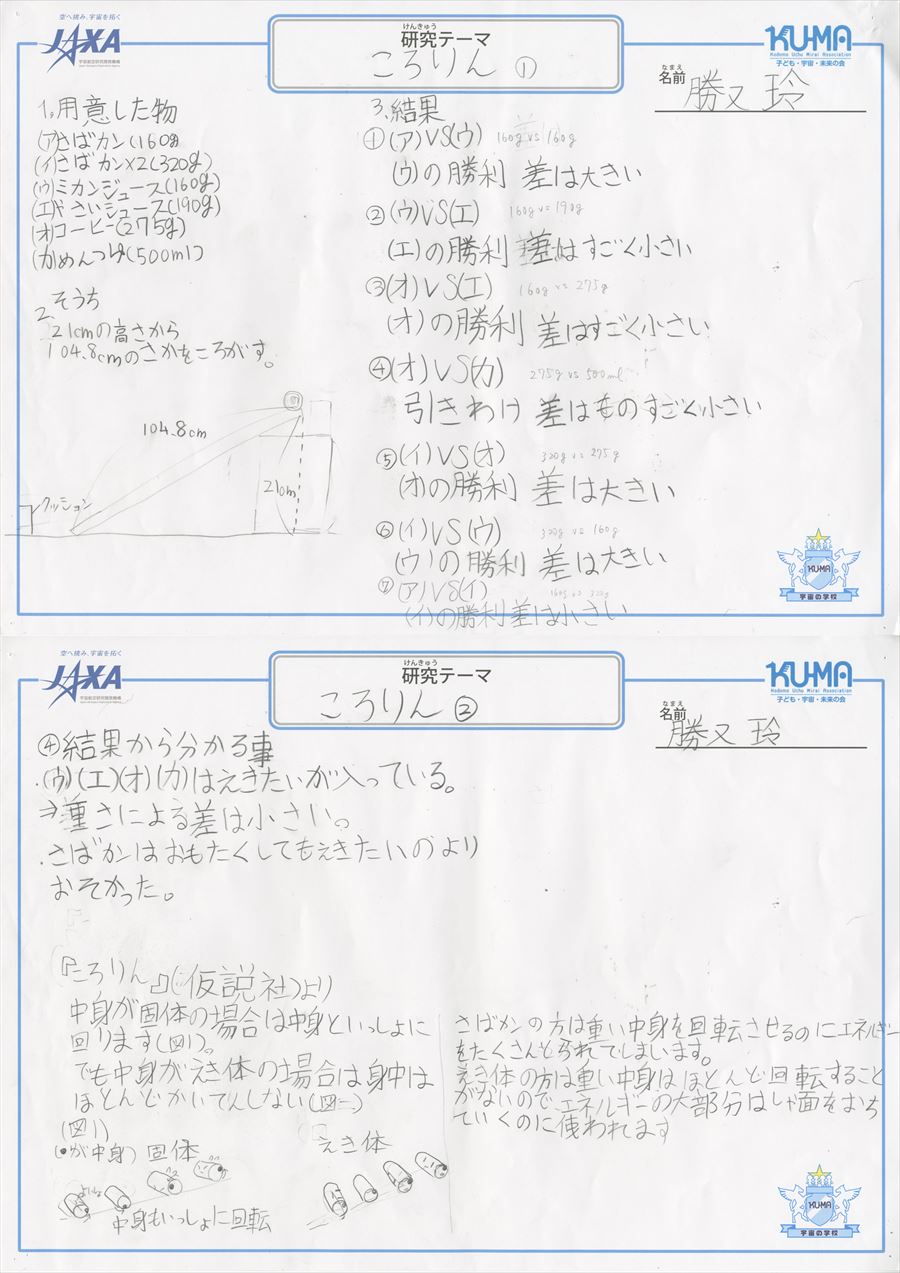 空へ挑み、宇宙を拓く
JAXA
宇宙航空研究開発機構
けんきゅう
研究テーマ
ころりん ①
KUMA
Kodomo Uchu Mirai Association
子ども・宇宙・未来の会
なまえ
名前
勝又 玲
1.用意した物
(ア)さばカン(160g)
(イ)さばカン×2(320g)
(ウ)ミカンジュース(160g)
(エ)やさいジュース(190g)
(オ)コーヒー(275g)
(カ)めんつゆ(500ml)
2.そうち
21cmの高さから
104.8cmのさかをころがす。
104.8cm
21cm
クッション
3.結果
①(ア)VS(ウ) 160g vs 160g
(ウ)の勝利 差は大きい
②(ウ)VS(エ) 160g vs 190g
(エ)の勝利 差はすごく小さい
③(オ)VS(エ) 160g vs 275g
(オ)の勝利 差はすごく小さい
④(オ)VS(カ) 275g vs 500ml
引きわけ 差はものすごく小さい
⑤(イ)VS(オ) 320g vs 275g
(オ)の勝利 差は大きい
⑥(イ)VS(ウ) 320g vs 160g
(ウ)の勝利 差は大きい
⑦(ア)VS(イ) 160g vs 320g
(イ)の勝利 差は小さい
KUMA
宇宙の学校
空へ挑み、宇宙を拓く
JAXA
宇宙航空研究開発機構
けんきゅう
研究テーマ
ころりん ②
KUMA
Kodomo Uchu Mirai Association
子ども・宇宙・未来の会
なまえ
名前
勝又 玲
④結果から分かる事
・(ウ)(エ)(オ)(カ)はえきたいが入っている。
⇒重さによる差は小さい。
・さばカンはおもたくしてもえきたいのより
おそかった。
『ころりん』(仮説社)より
中身が固体の場合は中身といっしょに
回ります(図1)。
でも中身がえき体の場合は身中は
ほとんどかいてんしない(図二)
(図1)
(●が中身) 固体
よいしょ
中身もいっしょに回転
えき体
さばカンの方は重い中身を回転させるのにエネルギー
をたくさんとられてしまいます。
えき体の方は重い中身はほとんど回転すること
がないので、エネルギーの大部分はしゃ面をおち
ていくのに使われます
KUMA
宇宙の学校